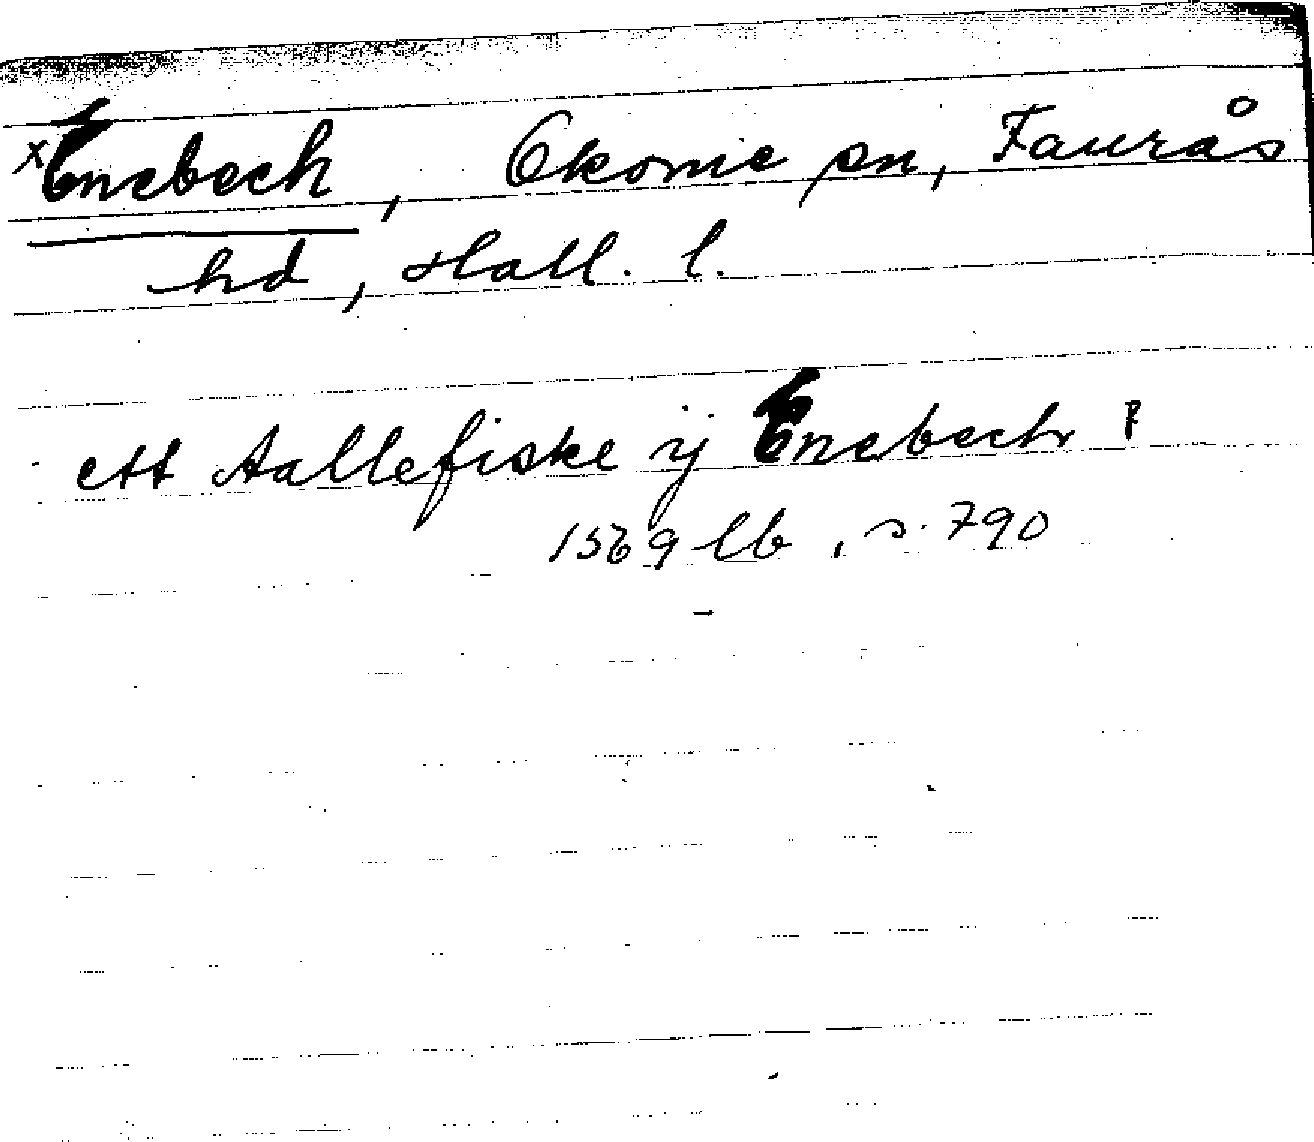 x Enebech, Okome sn, Faurås
hd, Hall. l.
ett Aallefiske ij Enebech
1569 lb, s. 790